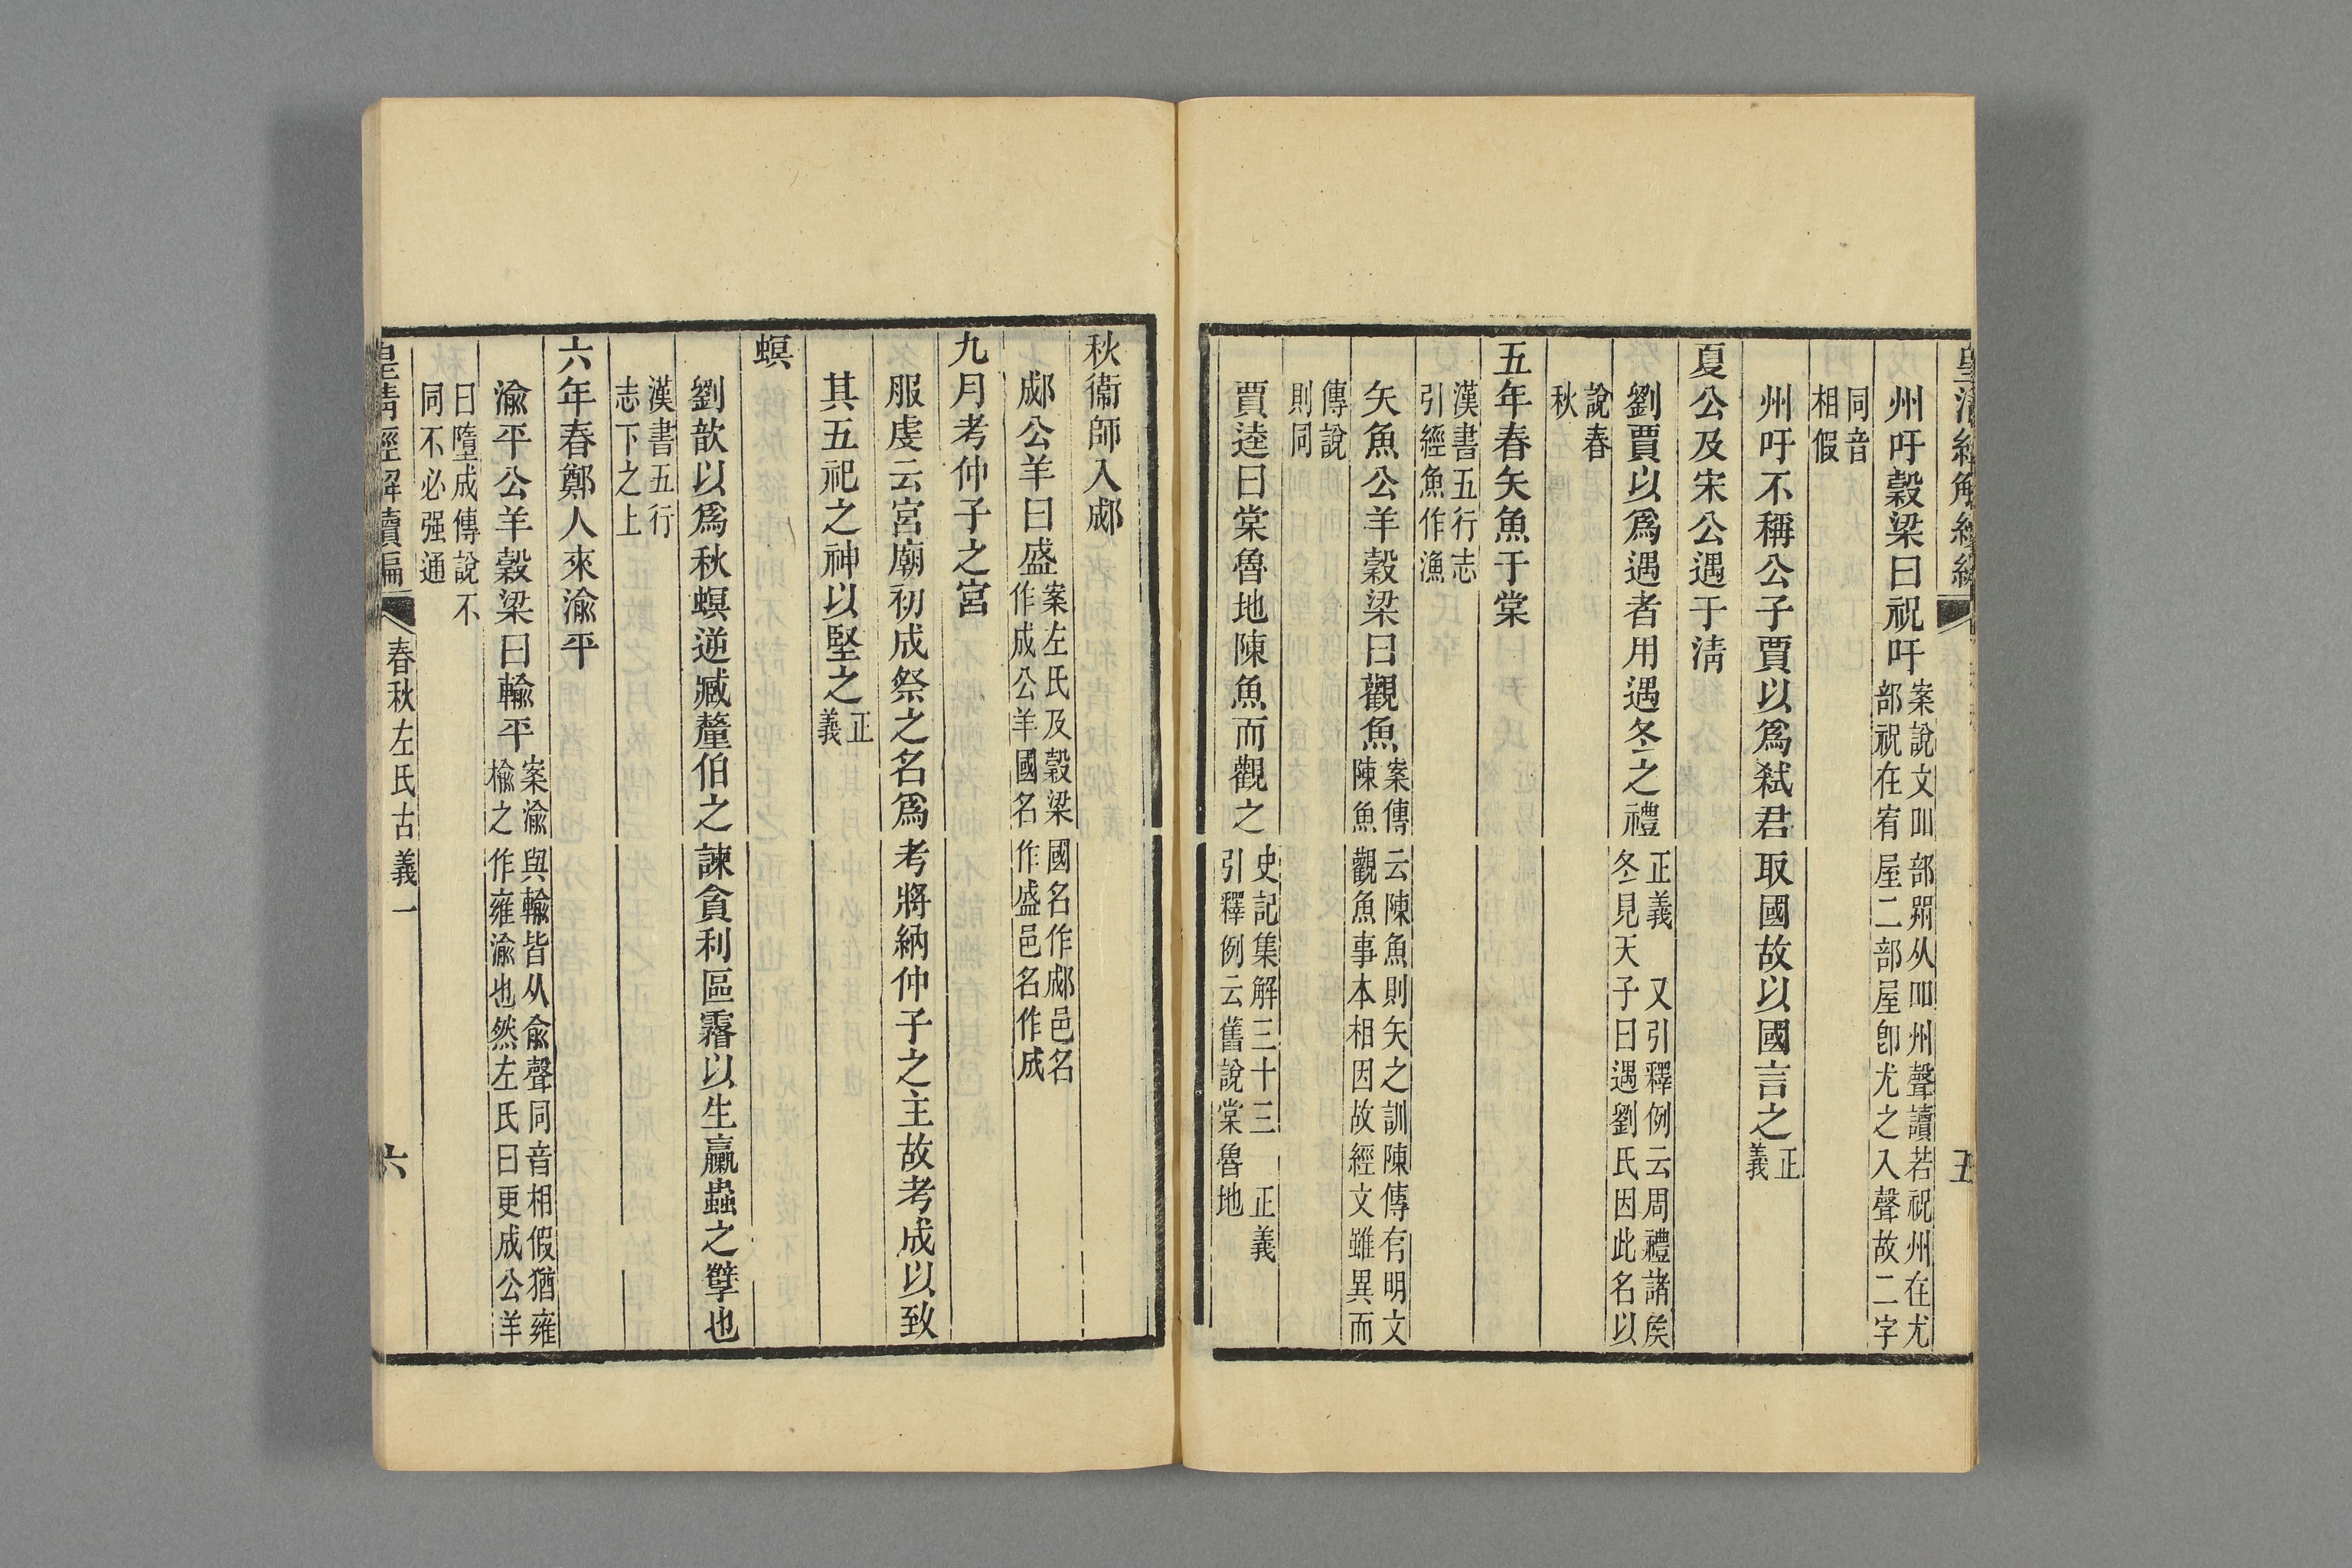 州吁穀梁曰祝吁案說文吅部喌从吅州聲讀若祝州在尤
部祝在宥屋二部屋卽尤之入聲故二字
同音
相假
州吁不稱公子賈以爲弒君取國故以國言之正
義
夏公及宋公遇于清
劉賈以爲遇者用遇冬之禮正義 又引釋例云周禮諸矦
冬見天子曰遇劉氏因此名以
說春
秋
五年春矢魚于棠
漢書五行志
引經魚作漁
矢魚公羊穀梁曰觀魚案傳云陳魚則矢之訓陳傳有明文
陳魚觀魚事本相因故經文雖異而
傳說
則同
賈逵曰棠魯地陳魚而觀之史記集解三十三 正義
引釋例云舊說棠魯地
五
秋衞師入郕
郕公羊曰盛案左氏及穀梁國名作郕邑名
作成公羊國名作盛邑名作成
九月考仲子之宮
服虔云宮廟初成祭之名爲考將納仲子之主故考成以致
其五祀之神以堅之正
義
螟
劉歆以爲秋螟逆臧釐伯之諫貪利區霿以生蠃蟲之孼也
漢書五行
志下之上
六年春鄭人來渝平
渝平公羊穀梁曰輸平案渝與輸皆从俞聲同音相假猶雍
楡之作雍渝也然左氏曰更成公羊
曰墮成傳說不
同不必强通
皇清經解續編 春秋左氏古義一 六